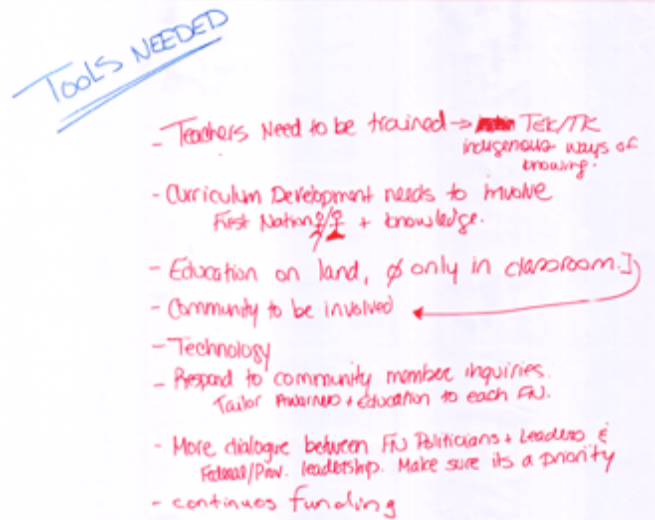 TOOLS NEEDED
- Teachers Need to be trained → TEK/TK
indigenous ways of
knowing.
- Curriculum Development needs to involve
First Nation + knowledge.
- Education on land, ø only in classroom.]
- Community to be involved
- Technology
- Respond to community member inquiries.
Tailor Awareness + education to each FN.
- More dialogue between FN Politicians + Leaders &
Federal/Prov. leadership. Make sure its a priority
- continues funding